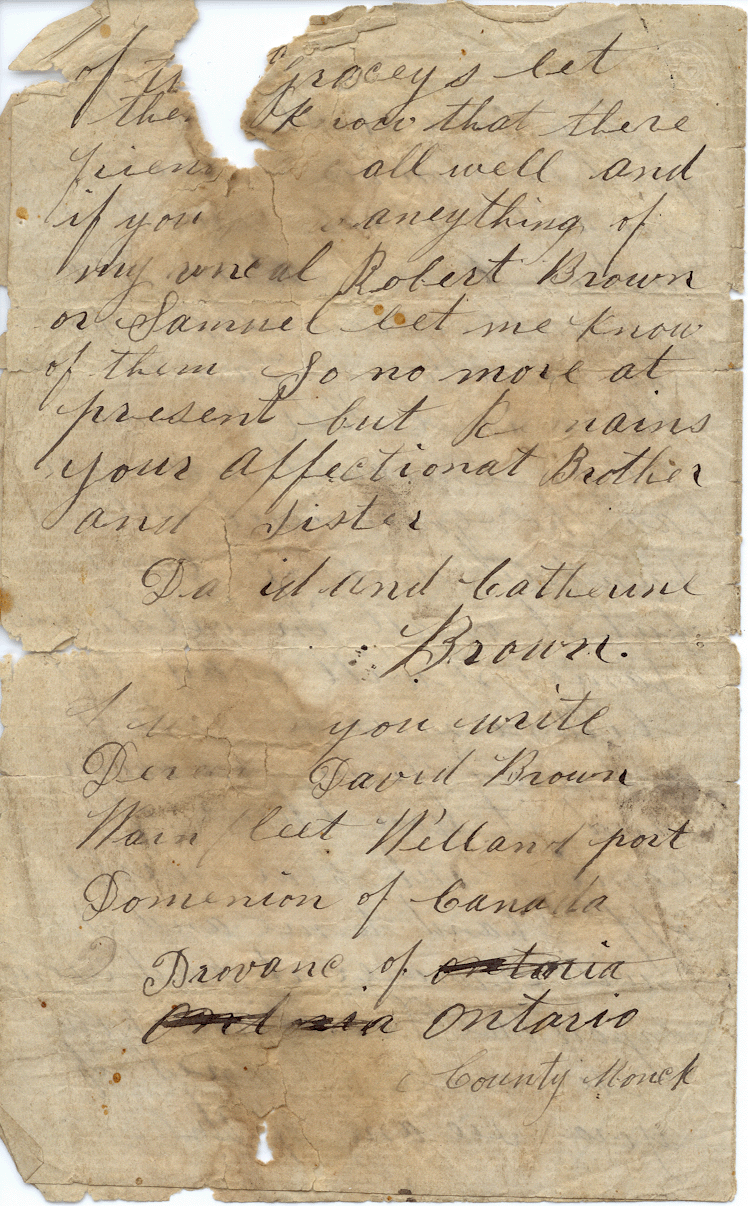 of Graceys let
know that there
all well and
if you aneything of
my uncal Robert Brown
or Samuel let me know
of them So no more at
present but nains
your affectionat Brother
and Sister
Da id and Catherine
Brown.
you write
David Brown
Wain fleet Welland port
Domenion of Canada
Provanc of ontaria
ontaria Ontario
County Monck